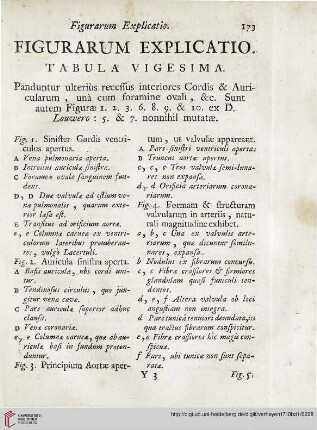 Figurarum Explicatio. 173
FIGURARUM EXPLICATIO.
TABULA VIGESIMA.
Panduntur ulteriùs recessus interiores Cordis & Auri-
cularum, unà cum foramine ovali, &c. Sunt
autem Figuræ 1. 2. 3. 6. 8. 9. & 10. ex D.
Louwero: 5. & 7. nonnihil mutatæ.
Fig. 1. Sinister Cordis ventri-
culus apertus.
A Vena pulmonaria aperta.
B Introitus auriculæ sinistræ.
C Foramen ovale sanguinem fun-
dens.
D, D Duæ valvulæ ad ostium ve-
næ pulmonalis, quarum exte-
rior læsa est.
E Transitus ad orificium aortæ.
e, e Columnæ carneæ ex ventri-
culorum lateribus protuberan-
tes; vulgò Lacertuli.
Fig. 2. Auricula sinistra aperta.
A Basis auriculæ, ubi cordi uni-
tur.
B Tendinosus circulus, quo jun-
gitur venæ cavæ.
C Pars auriculæ superior adhuc
clausa.
D Vena coronaria.
e, e Columnæ carneæ, quæ ab au-
riculæ basi in fundum proten-
duntur.
Fig. 3. Principium Aortæ aper-
tum, ut valvulæ appareant.
A Pars sinistri ventriculi apertus
D Truncus aortæ apertus.
c, c, c Tres valvulæ semi-luna-
res non expansæ.
d, d Orificia arteriarum corona-
riarum.
Fig. 4. Formam & structuram
valvularum in arteriis, natu-
rali magnitudine exhibet.
a, b, c Una ex valvulis arte-
riarum, quæ dicuntur semilu-
nares, expansa.
b Nodulus ex fibrarum concursu.
c, c Fibræ crassiores & firmiores
glandulam quasi funiculi ten-
dentes.
d, e, f Altera valvula ob loci
angustiam non integra.
d Pars tunicâ tenuiori denudata, in
qua tractus fibrarum conspicitur.
e, e Fibræ crassiores hic magis con-
spicuæ.
f Pars, ubi tunicæ non sunt sepa-
ratæ.
Y 3 Fig. 5.
UNIVERSITÄTS-
BIBLIOTHEK
HEIDELBERG